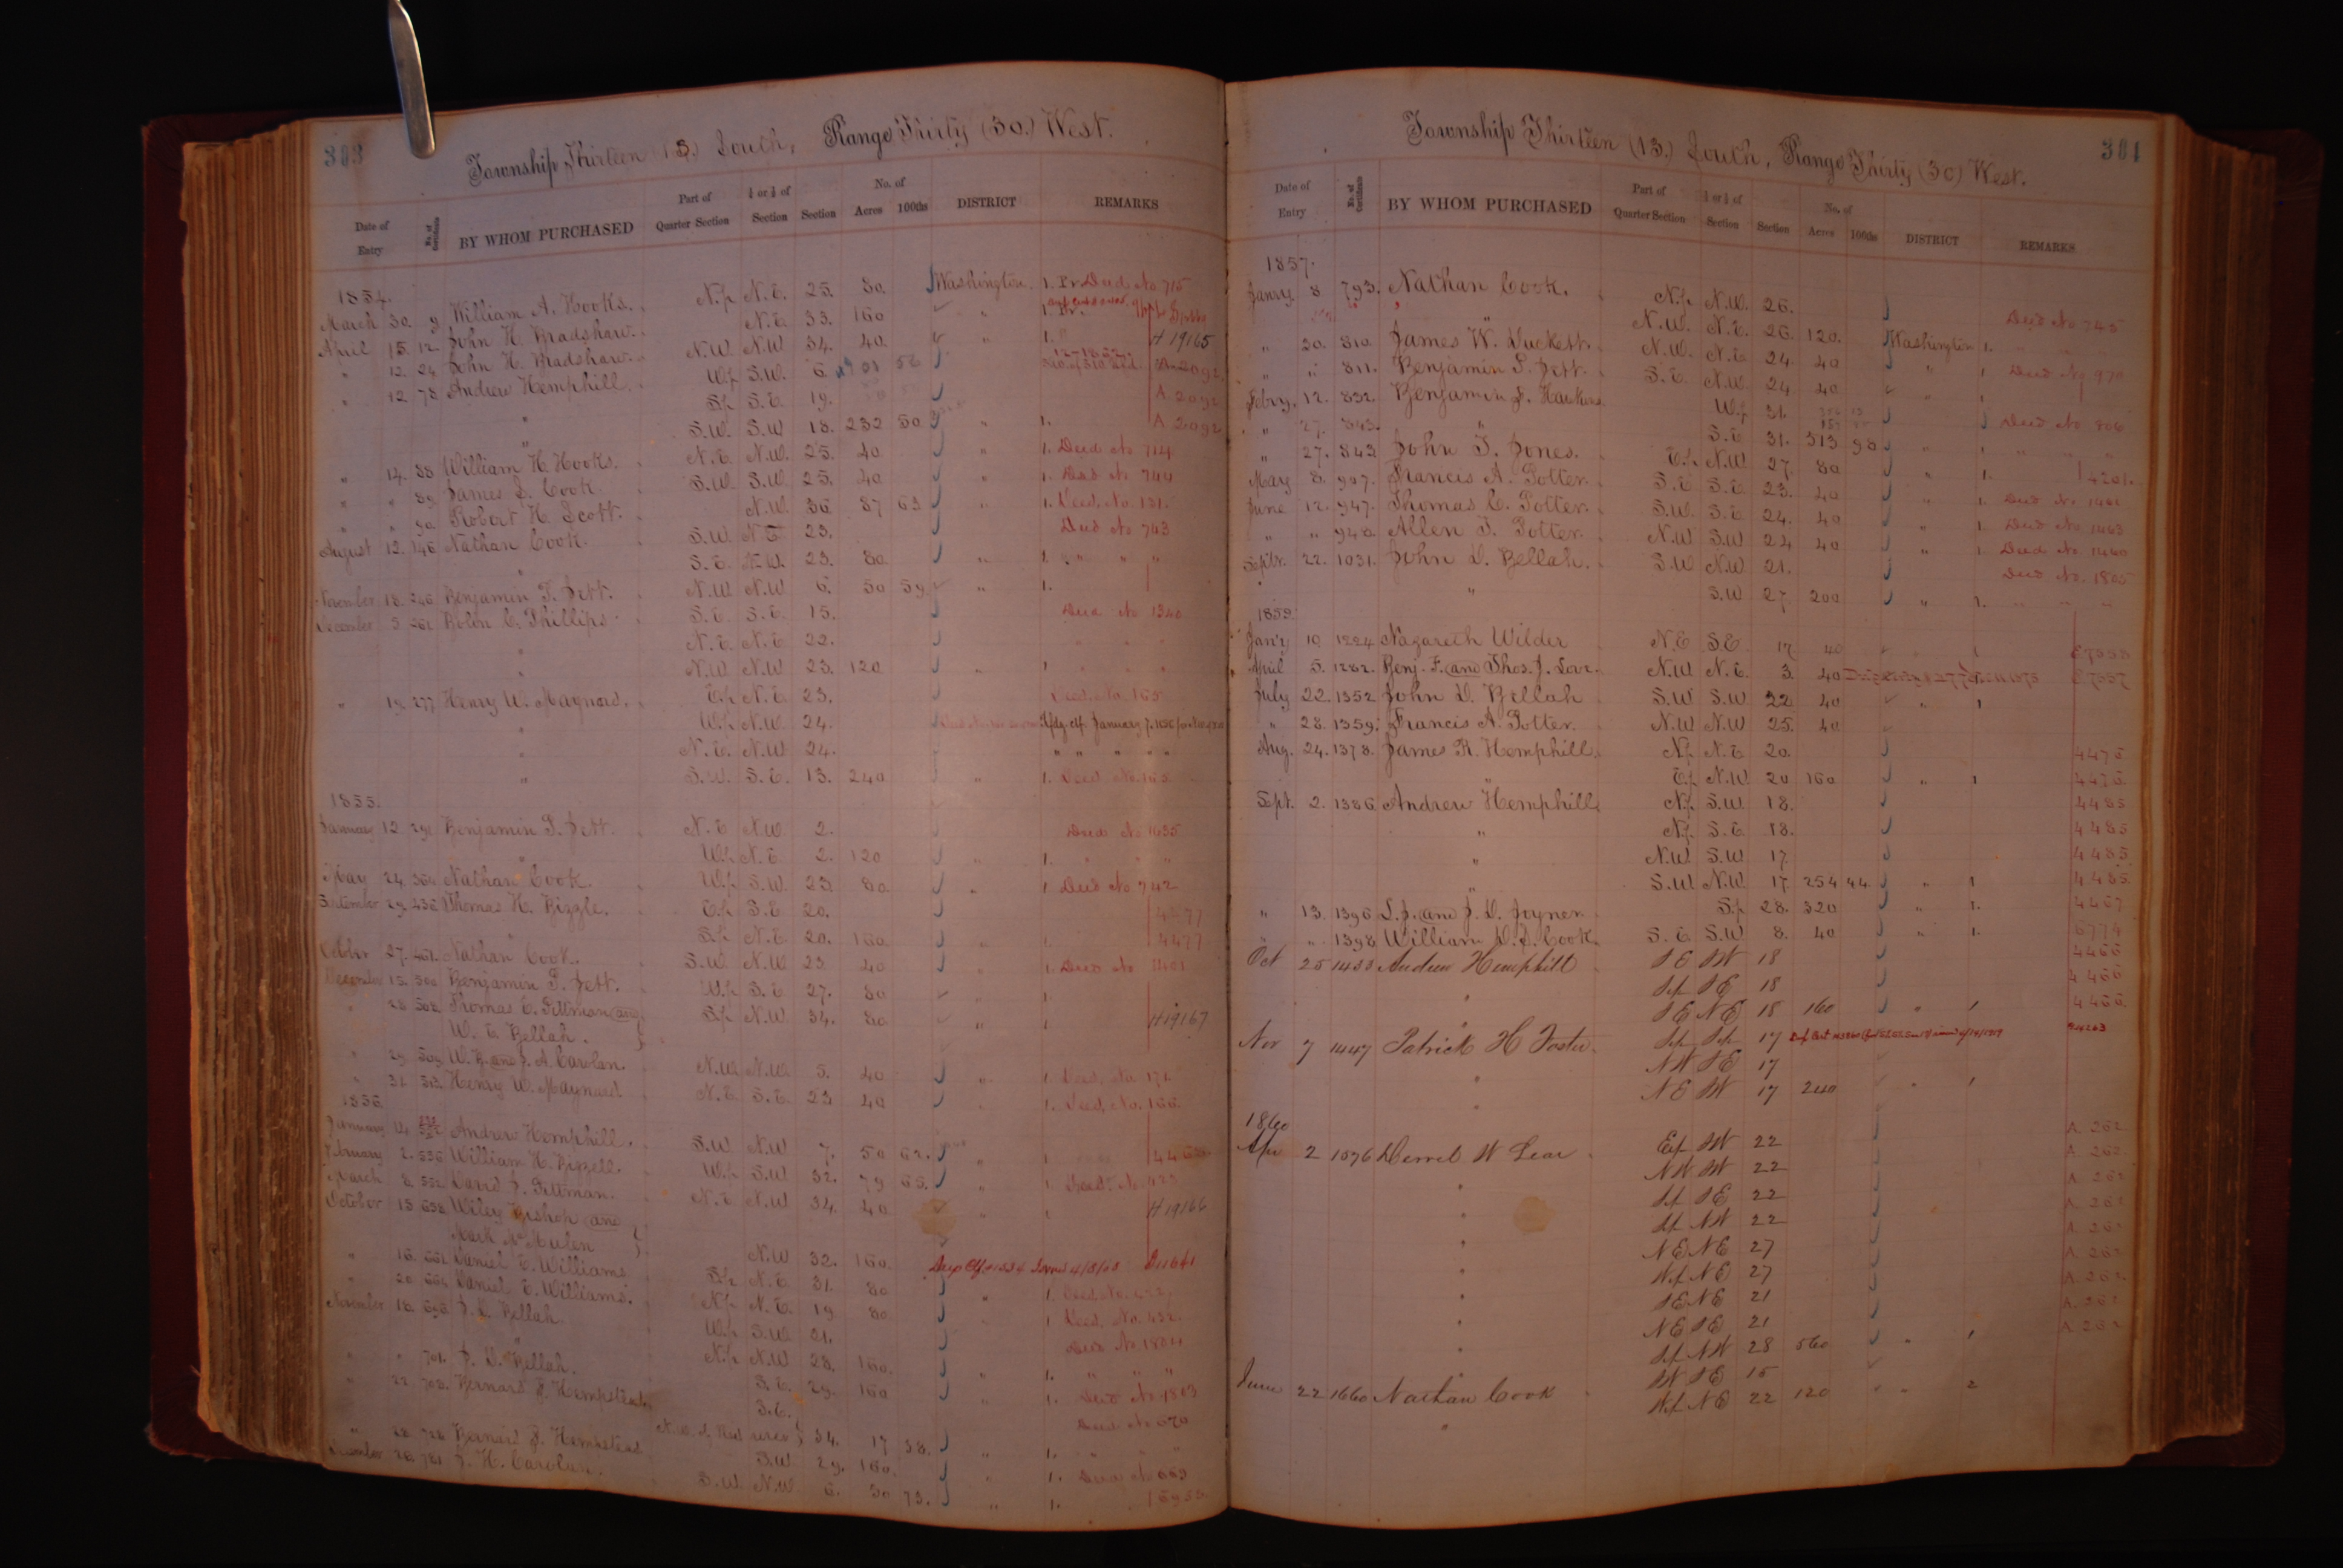 303
Township Thirteen (13.) South, Range Thirty (30.) West.
Date of Entry No. of Certificate BY WHOM PURCHASED Part of Quarter Section ½ or ¼ of Section Section No. of Acres 100ths DISTRICT REMARKS
1854.
March 30. 9 William A. Hooks. N.½ N.E. 25. 80. Washington. 1. Deed No 715
April 15. 12 John H. Bradshaw. N.E. 33. 160 " 1.
" 12. 24 John H. Bradshaw. N.W. N.W. 34. 40. " 1. H 19165
" 12 78 Andrew Hemphill. W.½ S.W. 6
" S.½ S.E. 19. A 2092
" S.W. S.W. 18. 232 80 " 1. A 2092
" 14. 88 William H. Hooks. N.E. N.W. 25. 40 " 1. Deed No 714
" " 89 James S. Cook. S.W. S.W. 25. 40 " 1. Deed No 744
" " 90 Robert H. Scott. N.W. 36 87 63 " 1. Deed, No. 131.
August 12. 146 Nathan Cook. S.W. N.E 23. Deed No 743
" S.E. N.W. 23. 80. " 1. " " "
November 18. 246 Benjamin T. Jett. N.W. N.W 6. 50 59 " 1.
December 5 261 Bolin C. Phillips. S.E. S.E. 15. Deed No 1340
" N.E. N.E 22. " " "
" N.W. N.W 23. 120 " 1 " " "
" 19. 277 Henry W. Maynard. E.½ N.E. 23. Deed, No. 165
" W.½ N.W. 24.
" N.E. N.W. 24. " " " " "
" S.W. S.E. 13. 240 " 1. Deed No. 165
1855.
January 12. 291 Benjamin T. Jett. N.E N.W 2. Deed No 1635
" W.½ N.E. 2. 120 " 1. " " "
May 24. 364 Nathan Cook. W.½ S.W. 23. 80. " 1 Deed No 742
September 29. 436 Thomas H. Bizzle. E.½ S.E 20. 4477
" S.½ N.E. 20. 160 " 1. 4477
October 27. 461. Nathan Cook. S.W. N.W 23 40 " 1. Deed No
December 15. 500 Benjamin T. Jett. W.½ S.E. 27. 80 " 1
" 28 508 Thomas C. Pittman and } S.½ N.W. 34. 80 " 1 H 19167
W. E. Bellah.
" 29. 509 W. B. and J. A. Carolan. N.W. N.W. 5. 40 " 1. Deed, No. 171
" 31. 513. Henry W. Maynard N.E. S.E. 23 40 " 1. Deed, No. 166.
1856.
January 14. Andrew Hemphill. S.W. N.W 7. 50 62. " 1
February 2. 536 William H. Bizzell. W.½ S.W 32. 79 65. " 1.
March 8. 552 David J. Pittman. N.E. N.W 34. 40 " 1 H 19166
October 15 658 Wiley Bishop and }
Mark McMulen N.W 32. 160.
" 16. 661 Daniel E. Williams S.½ N.E. 31. 80 " 1. Deed, No. 432
" 20 664 Daniel E. Williams. N.½ N.E. 19 80 " 1. Deed, No. 432.
November 18. 696 J. D. Bellah. W.½ S.W. 21. Deed No 1804
" N.½ N.W 28. 160. " 1. " " "
" " 701. J. D. Bellah. S.E. 29. 160 " 1. Deed No 1803
" 22. 708. Bernard J. Hempstead. S.E. Deed No 670
34. 17 38. " 1. " "
" 28. 728 Bernard J. Hempstead S.W 29. 160. " 1. Deed No 669
December 26. 781 J. H. Carolan. S.W. N.W 6. 50 73. " 1.
304
Township Thirteen (13.) South, Range Thirty (30) West.
Date of Entry No. of Certificate BY WHOM PURCHASED Part of Quarter Section ½ or ¼ of Section Section No. of Acres 100ths DISTRICT REMARKS
1857.
Janry 8 793. Nathan Cook. N.½ N.W. 26. Deed No 745
" N.W. N.E. 26. 120. Washington 1. " "
" 20. 810. James W. Duckett. N.W. N.E. 24. 40 " 1 Deed No 970
" " 811. Benjamin T. Jett. S.E. N.W. 24. 40 " 1
Febry. 12. 832. Benjamin F. Hawkins. W.½ 31. Deed No 806
" 27. 843. " S.E 31. 313 98 " 1 " " "
" 27. 843 John T. Jones. E.½ N.W. 27. 80 " 1. 4201.
May 8. 907. Francis A. Potter. S.E S.E. 23. 40 " 1. Deed No. 1461
June 12. 947. Thomas C. Potter. S.W. S.E 24. 40 " 1. Deed No. 1463
" " 948 Allen T. Potter. N.W S.W 24 40 " 1. Deed No. 1460
Septbr. 22. 1031. John D. Bellah. S.W N.W 21. Deed No. 1805
" S.W 27. 200 " 1. " " "
1859.
Jan'y 10 1224 Nazareth Wilder N.E S.E 17. 40 " 1
April 5. 1282. Benj. F. and Thos. J. Lour. N.W N.E. 3. 40 E 7557
July 22. 1352 John D. Bellah S.W S.W 22 40 " 1
" 28. 1359. Francis A. Potter. N.W N.W 25. 40
Aug. 24. 1378. James R. Hemphill. N.½ N.E 20. 4476
E.½ N.W 20 160 " 1 4476
Sept. 2. 1386 Andrew Hemphill. N.½ S.W. 18. 4485
" N.½ S.E. 18. 4485
" N.W S.W 17. 4485
" S.W N.W 17. 254 44 " 1 4485
" 13. 1396 L. J. and J. D. Joyner. S.½ 28. 320 " 1. 4467
" " 1398 William D. S. Cook. S.E. S.W 8. 40 " 1. 6774
Oct 25 1433 Andrew Hemphill SE SW 18 4466
" S½ SE 18 4466
" SE NE 18 160 " 1 4466
Nov 7 1447 Patrick H Foster S½ S½ 17
" NW SE 17
" NE SW 17 240 " 1
1860
Apr 2 1576 Derrel W Lear E½ SW 22 A. 262
" NW SW 22 A. 262
" S½ SE 22 A. 262
" S½ NW 22 A. 262
" NE NE 27 A. 262
" W½ NE 27 A. 262
" SE NE 21 A. 262
" NE SE 21 A. 262
" S½ NW 28 560 " 1 A. 262
June 22 1660 Nathan Cook SW SE 15
" W½ NE 22 120 " " 2